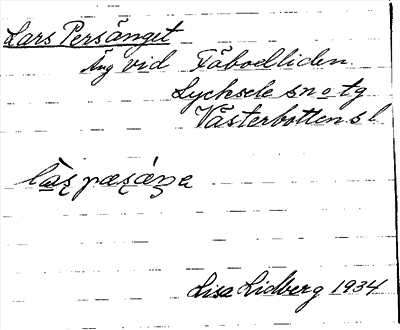 Lars Persänget
Äng vid Fäboelliden.
Lycksele sn o tg
Västerbottens l
Lisa Lidberg 1934